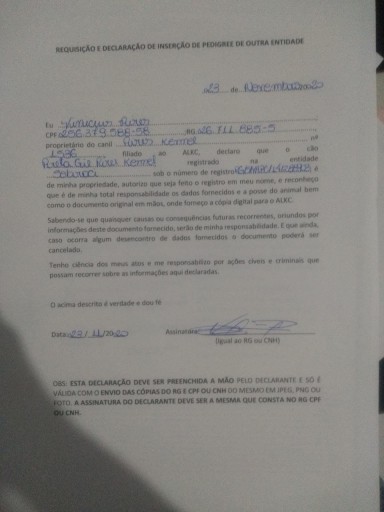 REQUISIÇÃO E DECLARAÇÃO DE INSERÇÃO DE PEDIGREE DE OUTRA ENTIDADE
23 de Novembro
Eu Vinicius
CPF RG
proprietário do canil Kennel nº
1536 filiado ao ALKC, declaro que o cão
Kennel registrado na entidade
Sobraci sob o número de registro e
de minha propriedade, autorizo que seja feito o registro em meu nome, e reconheço
que é de minha total responsabilidade os dados fornecidos e a posse do animal bem
como o documento original em mãos, onde forneço a cópia digital para o ALKC.
Sabendo-se que quaisquer causas ou consequências futuras recorrentes, oriundos por
informações deste documento fornecido, serão de minha responsabilidade. E que ainda,
caso ocorra algum desencontro de dados fornecidos o documento poderá ser
cancelado.
Tenho ciência dos meus atos e me responsabilizo por ações cíveis e criminais que
possam recorrer sobre as informações aqui declaradas.
O acima descrito é verdade e dou fé
Data: 23/11/2020 Assinatura
(Igual ao RG ou CNH)
OBS: ESTA DECLARAÇÃO DEVE SER PREENCHIDA A MÃO PELO DECLARANTE E SÓ É
VÁLIDA COM O ENVIO DAS CÓPIAS DO RG E CPF OU CNH DO MESMO EM JPEG, PNG OU
FOTO. A ASSINATURA DO DECLARANTE DEVE SER A MESMA QUE CONSTA NO RG CPF
OU CNH.